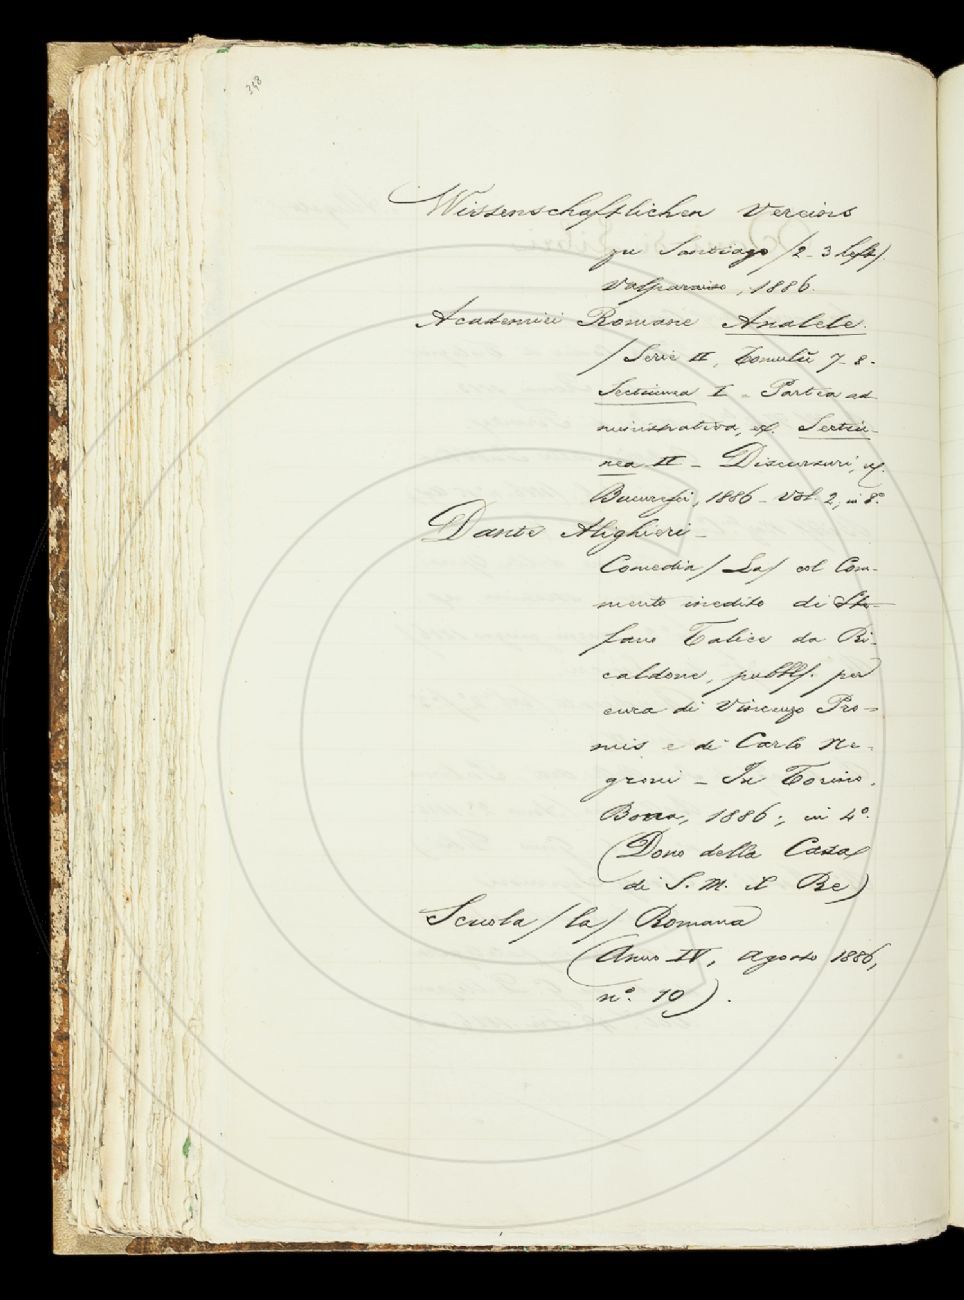 348
Wissenschaftlichen Vereins
zu Santiago /2-3 heft/.
Valparaiso, 1886.
Academiei Romane Analele.
/Serie II, Tomulŭ 7-8-
Sectiunea I - Partea ad
ministrativa, ex. Sectiu-
nea II - Discursuri, ex.
Bucuresci, 1886 - Vol. 2, in 8º.
Dante Alighieri -
Comedia /La/ col Com-
mento inedito di Ste-
fano Talice da Ri-
caldone, pubbl. per
cura di Vincenzo Pro-
mis e di Carlo Ne-
groni - In Torino,
Bona, 1886; in 4º.
(Dono della Casa
di S. M. il Re)
Scuola /la/ Romana
(Anno IV, Agosto 1886,
nº. 10).